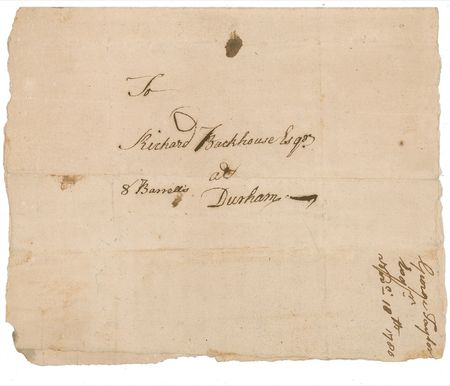 To
Richard Backhouse Esqr.
at
8 Barrells
Durham
George Taylor
Esqr.
10th 1780